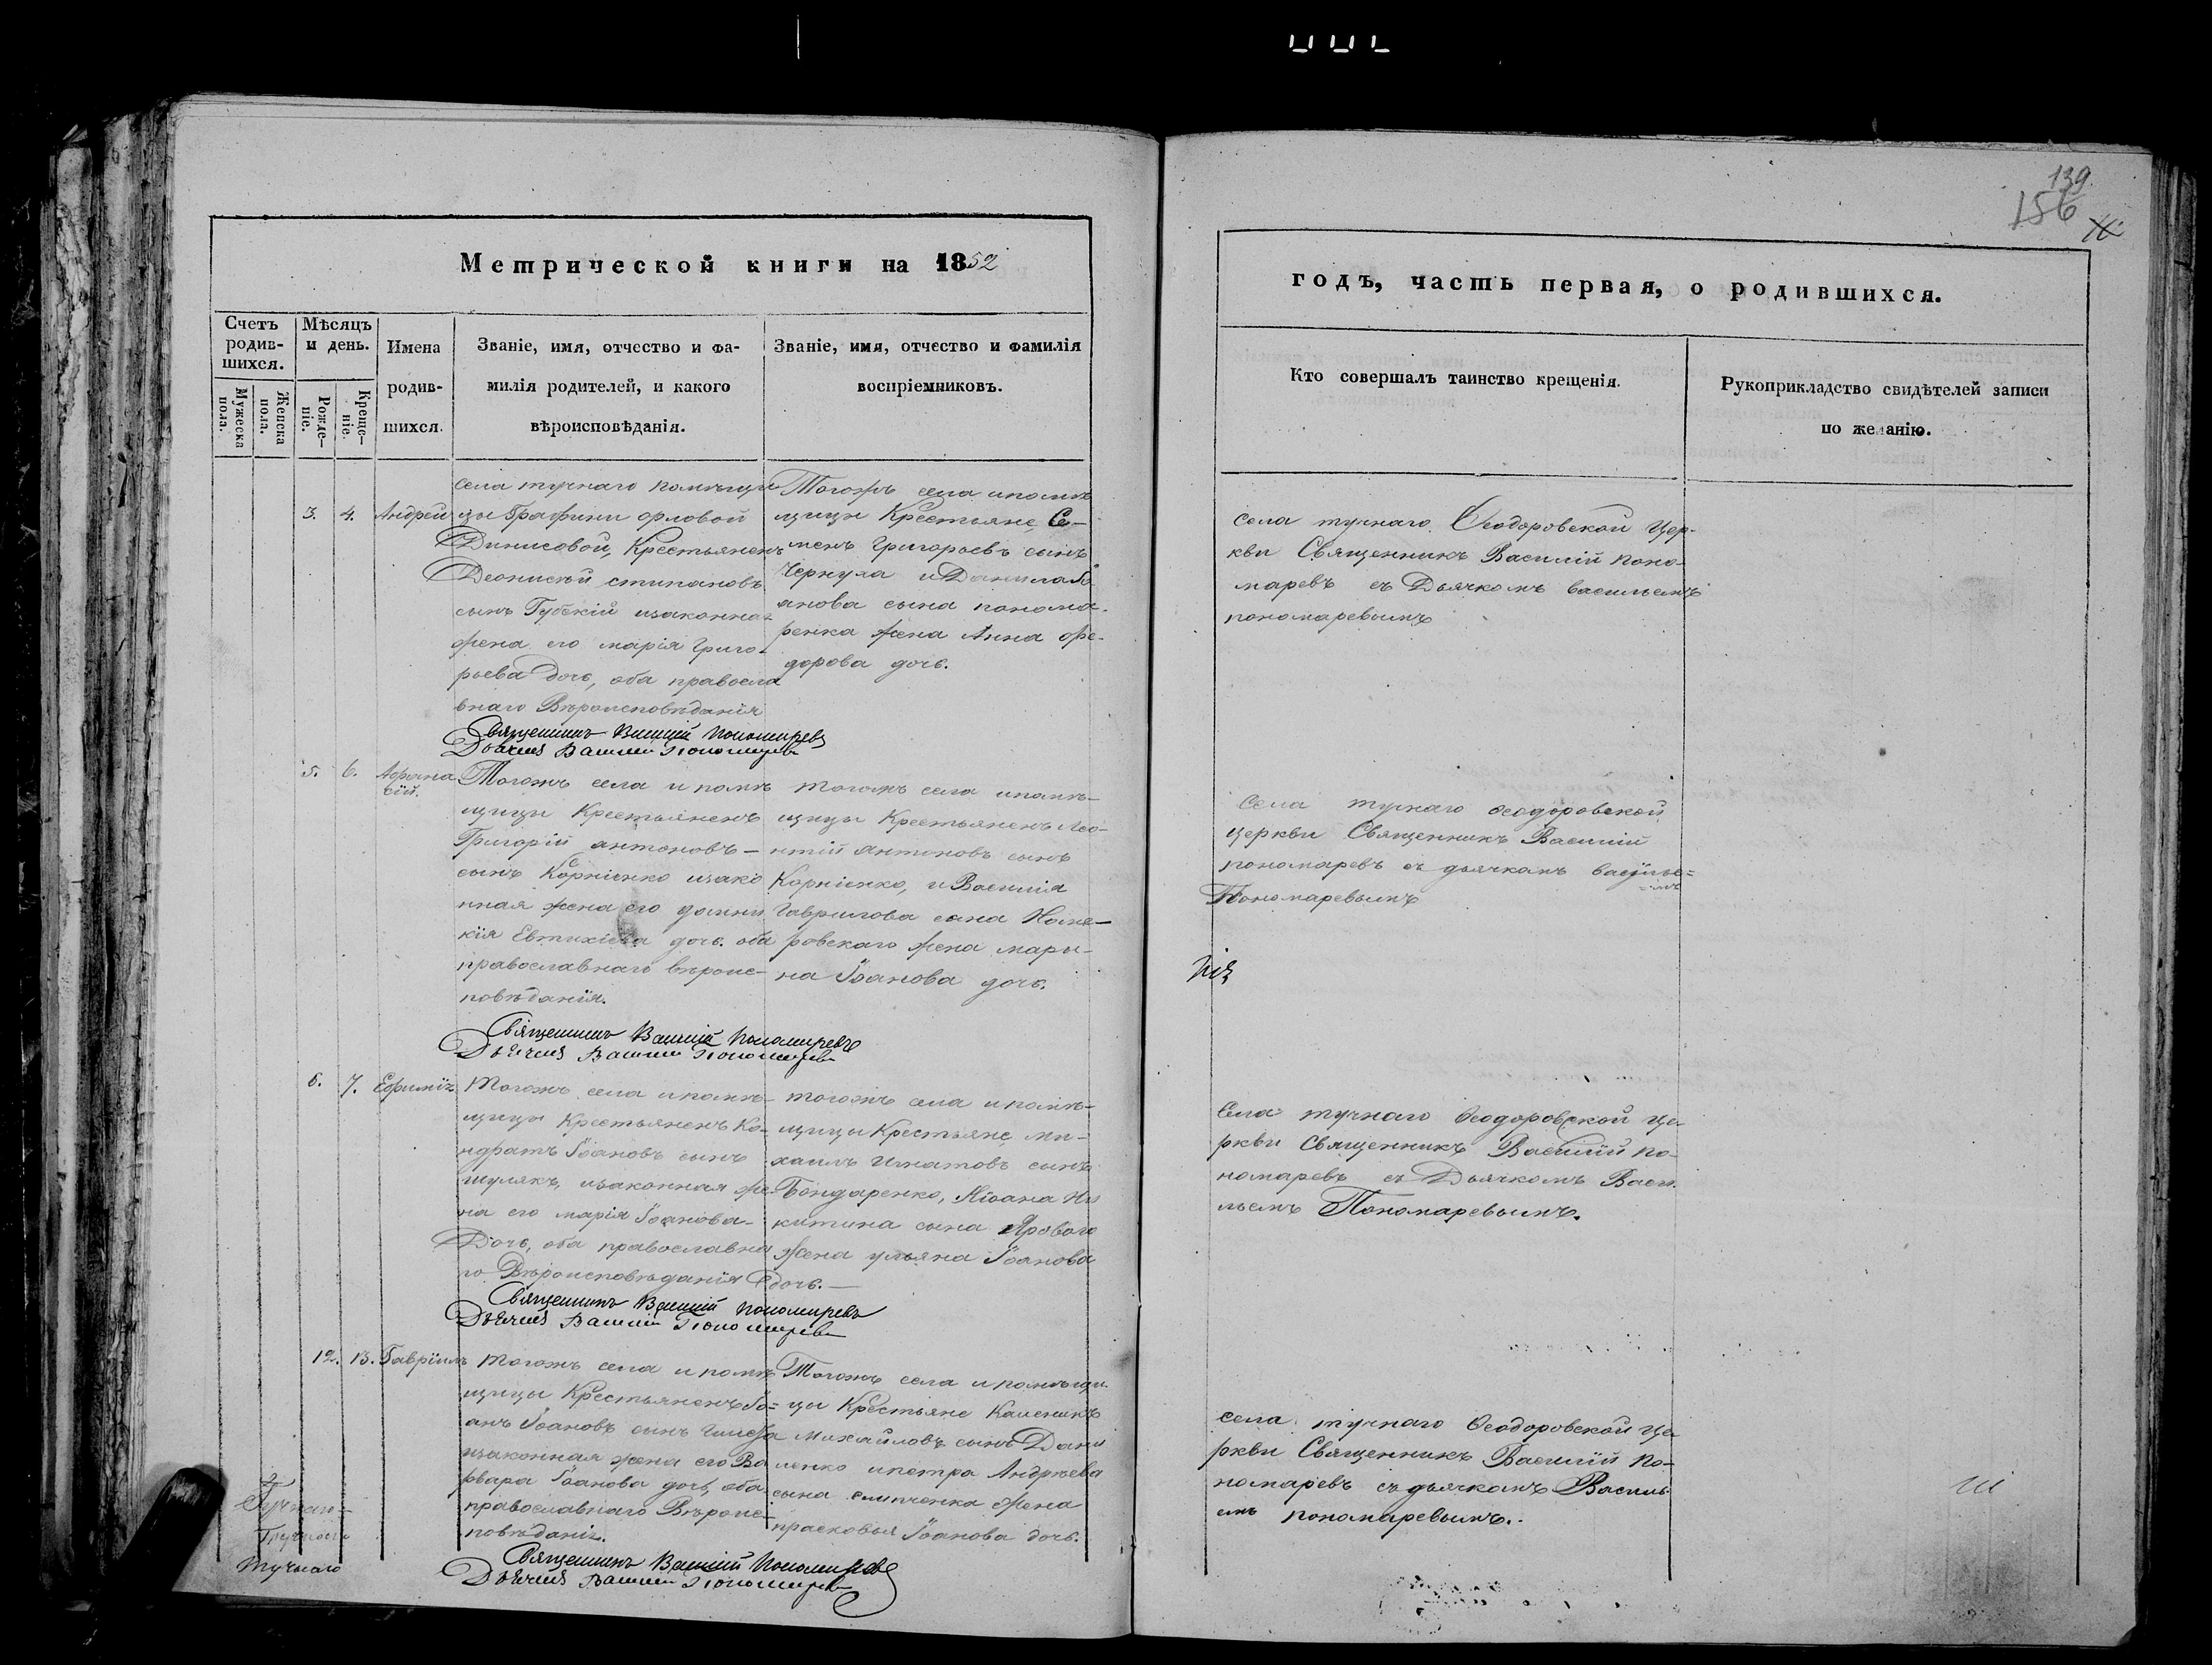 139
156
Метрической книги на 1852
годъ, часть первая, о родившихся.
Счетъ родив-шихся.
Мужеска пола.
Женска пола.
Мѣсяцъ и день.
Рожде-ніе.
Креще-ніе.
Имена
родив-
шихся.
Званіе, имя, отчество и фа-
милія родителей, и какого
вѣроисповѣданія.
Званіе, имя, отчество и фамилія
воспріемниковъ.
Кто совершалъ таинство крещенія.
Рукоприкладство свидѣтелей записи
по желанію.
3. 4. Андрей
села тучнаго помѣщи
цы Графини орловой
Динисовой, Крестьяненъ
Деонисѣй стипановъ
сынъ Губскій изаконна
жена его марія Григо-
рьева дочь, оба правосла
внаго Вѣроисповѣданія
Тогожъ села ипомѣ
щицы Крестьяне, Се-
менъ Григорьевъ сынъ
Чернуха и Данила Іо
анова сына понома-
ренка жена Анна Фе-
дорова дочь.
села тучнаго Ѳеодоровской Цер-
кви Священникъ Василій поно-
маревъ съ Дьячкомъ васильемъ
пономаревымъ
Священникъ Василій Пономаревъ
Дьячекъ Василій Пономаревъ
5. 6. Афана
сій.
Тогожъ села и помѣ
щицы Крестьяненъ
Григорій антоновъ-
сынъ Корніенко изако
нная жена его домни
кія Евтихіева дочь. оба
православнаго вѣроис-
повѣданія.
тогожъ села ипомѣ-
щицы Крестьяненъ Лео-
нтій антоновъ сынъ
Корніенко, и Василія
Гаврилова сына
ровскаго жена мари-
на Іоанова дочь.
Села тучнаго Ѳеодоровской
церкви Священникъ Василій
пономаревъ съ дьячкамъ василье-
мъ
Пономаревымъ
Священникъ Василій Пономаревъ
Дьячекъ Василій Пономаревъ
6. 7. Ефимій
Тогожъ села ипомѣ-
щицы Крестьяненъ Ко-
ндратъ Іоановъ сынъ
шулякъ, изаконная же-
на его марія Іоанова-
Дочь, оба православна
го Вѣроисповѣданія
тогожъ села ипомѣ-
щицы Крестьяне ми-
хаилъ Игнатовъ сынъ
Бондаренко, Иіоана Ни
китина сына Ярового
жена ульяна Іоанова
дочь.-
Села тучнаго Ѳеодоровской це
ркви Священникъ Василій по-
номаревъ съ Дьячкомъ Васи-
льемъ Пономаревымъ.
Священникъ Василій Пономаревъ
Дьячекъ Василій Пономаревъ
12. 13. Гавріилъ
тогожъ села и помѣ
щицы Крестьяненъ Іо-
анъ Іоановъ сынъ
изаконная жена его Ва
рвара Іоанова дочь, оба
православнаго Вѣроис-
повѣданія.
Тогожъ села и помѣщи-
цы Крестьяне Каленикъ
Михайловъ сынъ Дани
ленко ипетра Андрѣева
сына слипченка жена
прасковья Іоанова дочь.
села тучнаго Ѳеодоровской це
ркви Священникъ Василій По-
номаревъ съ дьячкамъ Василь
емъ пономаревымъ.
Священникъ Василій Пономаревъ
Дьячекъ Василій Пономаревъ
Тучнаго